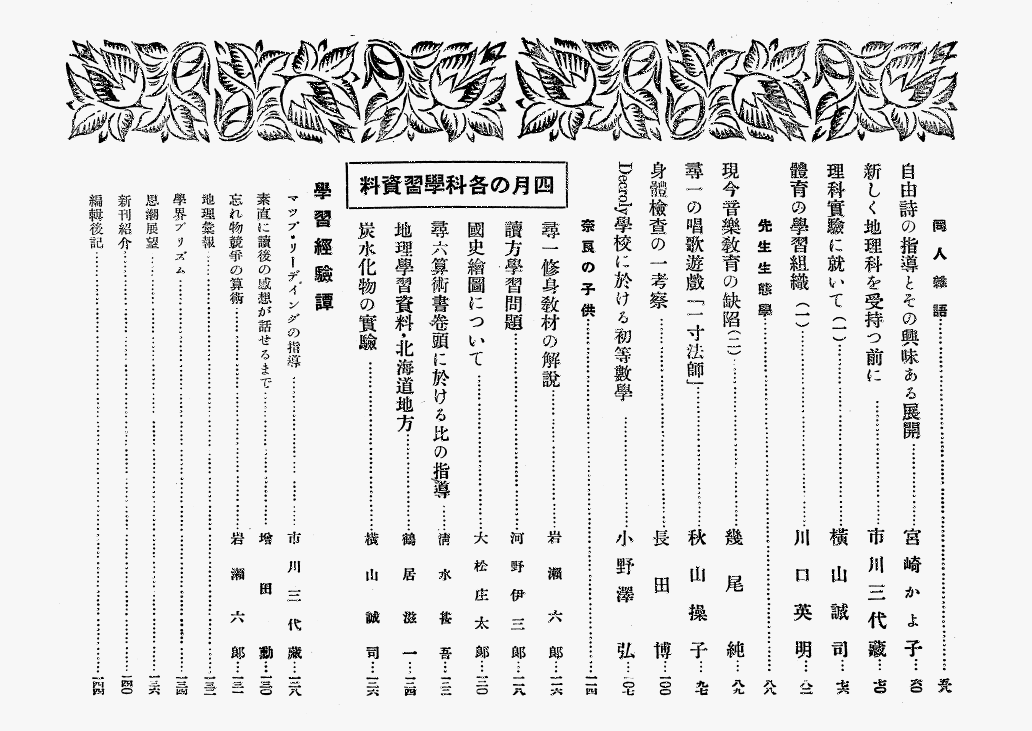 同人雜語……五九
自由詩の指導とその興味ある展開……宮崎かよ子…六〇
新しく地理科を受持つ前に……市川三代藏…七〇
理科實驗に就いて(一)……橫山誠司…七六
體育の學習組織(一)……川口英明…八二
先生生態學……八八
現今音樂敎育の缺陷(二)……幾尾純…八九
尋一の唱歌遊戲「一寸法師」……秋山操子…九七
身體檢查の一考察……長田博…一〇〇
Decroly學校に於ける初等數學……小野澤弘…一〇七
奈良の子供……一一四
四月の各科學習資料
尋一修身敎材の解說……岩瀨六郞…一一六
讀方學習問題……河野伊三郞…一一八
國史繪圖について……大松庄太郞…一二〇
尋六算術書卷頭に於ける比の指導……淸水 吾…一二二
地理學習資料・北海道地方……鶴居滋一…一二四
炭水化物の實驗……橫山誠司…一二六
學習經驗譚
マツプ・リーデイングの指導……市川三代藏…一二八
素直に讀後の感想が話せるまで……增田勳…一三〇
忘れ物競爭の算術……岩瀨六郞…一三一
地理彙報……一三二
學界プリズム……一三四
思潮展望……一三六
新刊紹介……一四〇
編輯後記……一四四